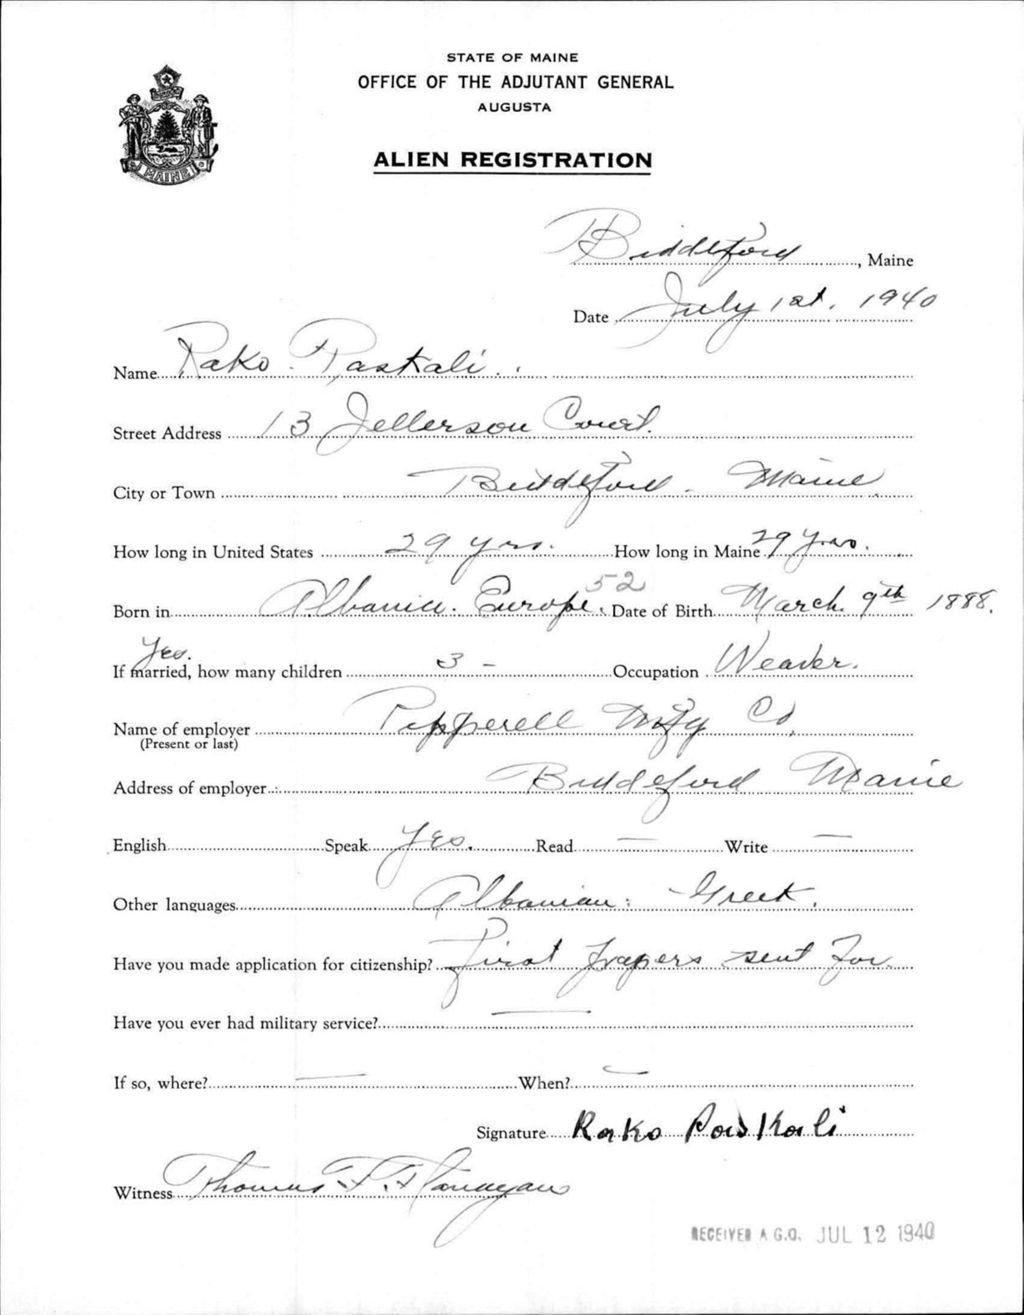 STATE OF MAINE
OFFICE OF THE ADJUTANT GENERAL
AUGUSTA
MAINE
ALIEN REGISTRATION
Biddeford, Maine
Date July 1st. 1940
Name Rako Paskali.
Street Address 13 Jellerson Court.
City or Town Biddeford. Maine.
How long in United States 29 yrs. How long in Maine 29 yrs.
52
Born in Albania. Europe. Date of Birth March 9th 1888.
Yes.
If married, how many children 3 - Occupation Weaver.
Name of employer Pepperell Mfg Co.
(Present or last)
Address of employer Biddeford Maine
English Speak Yes. Read — Write —
Other languages Albanian: Greek.
Have you made application for citizenship? First papers sent for
Have you ever had military service? —
If so, where? — When? —
Signature Rako Paskali
Witness Thomas F. Flanagan
RECEIVED A.G.O. JUL 12 1940